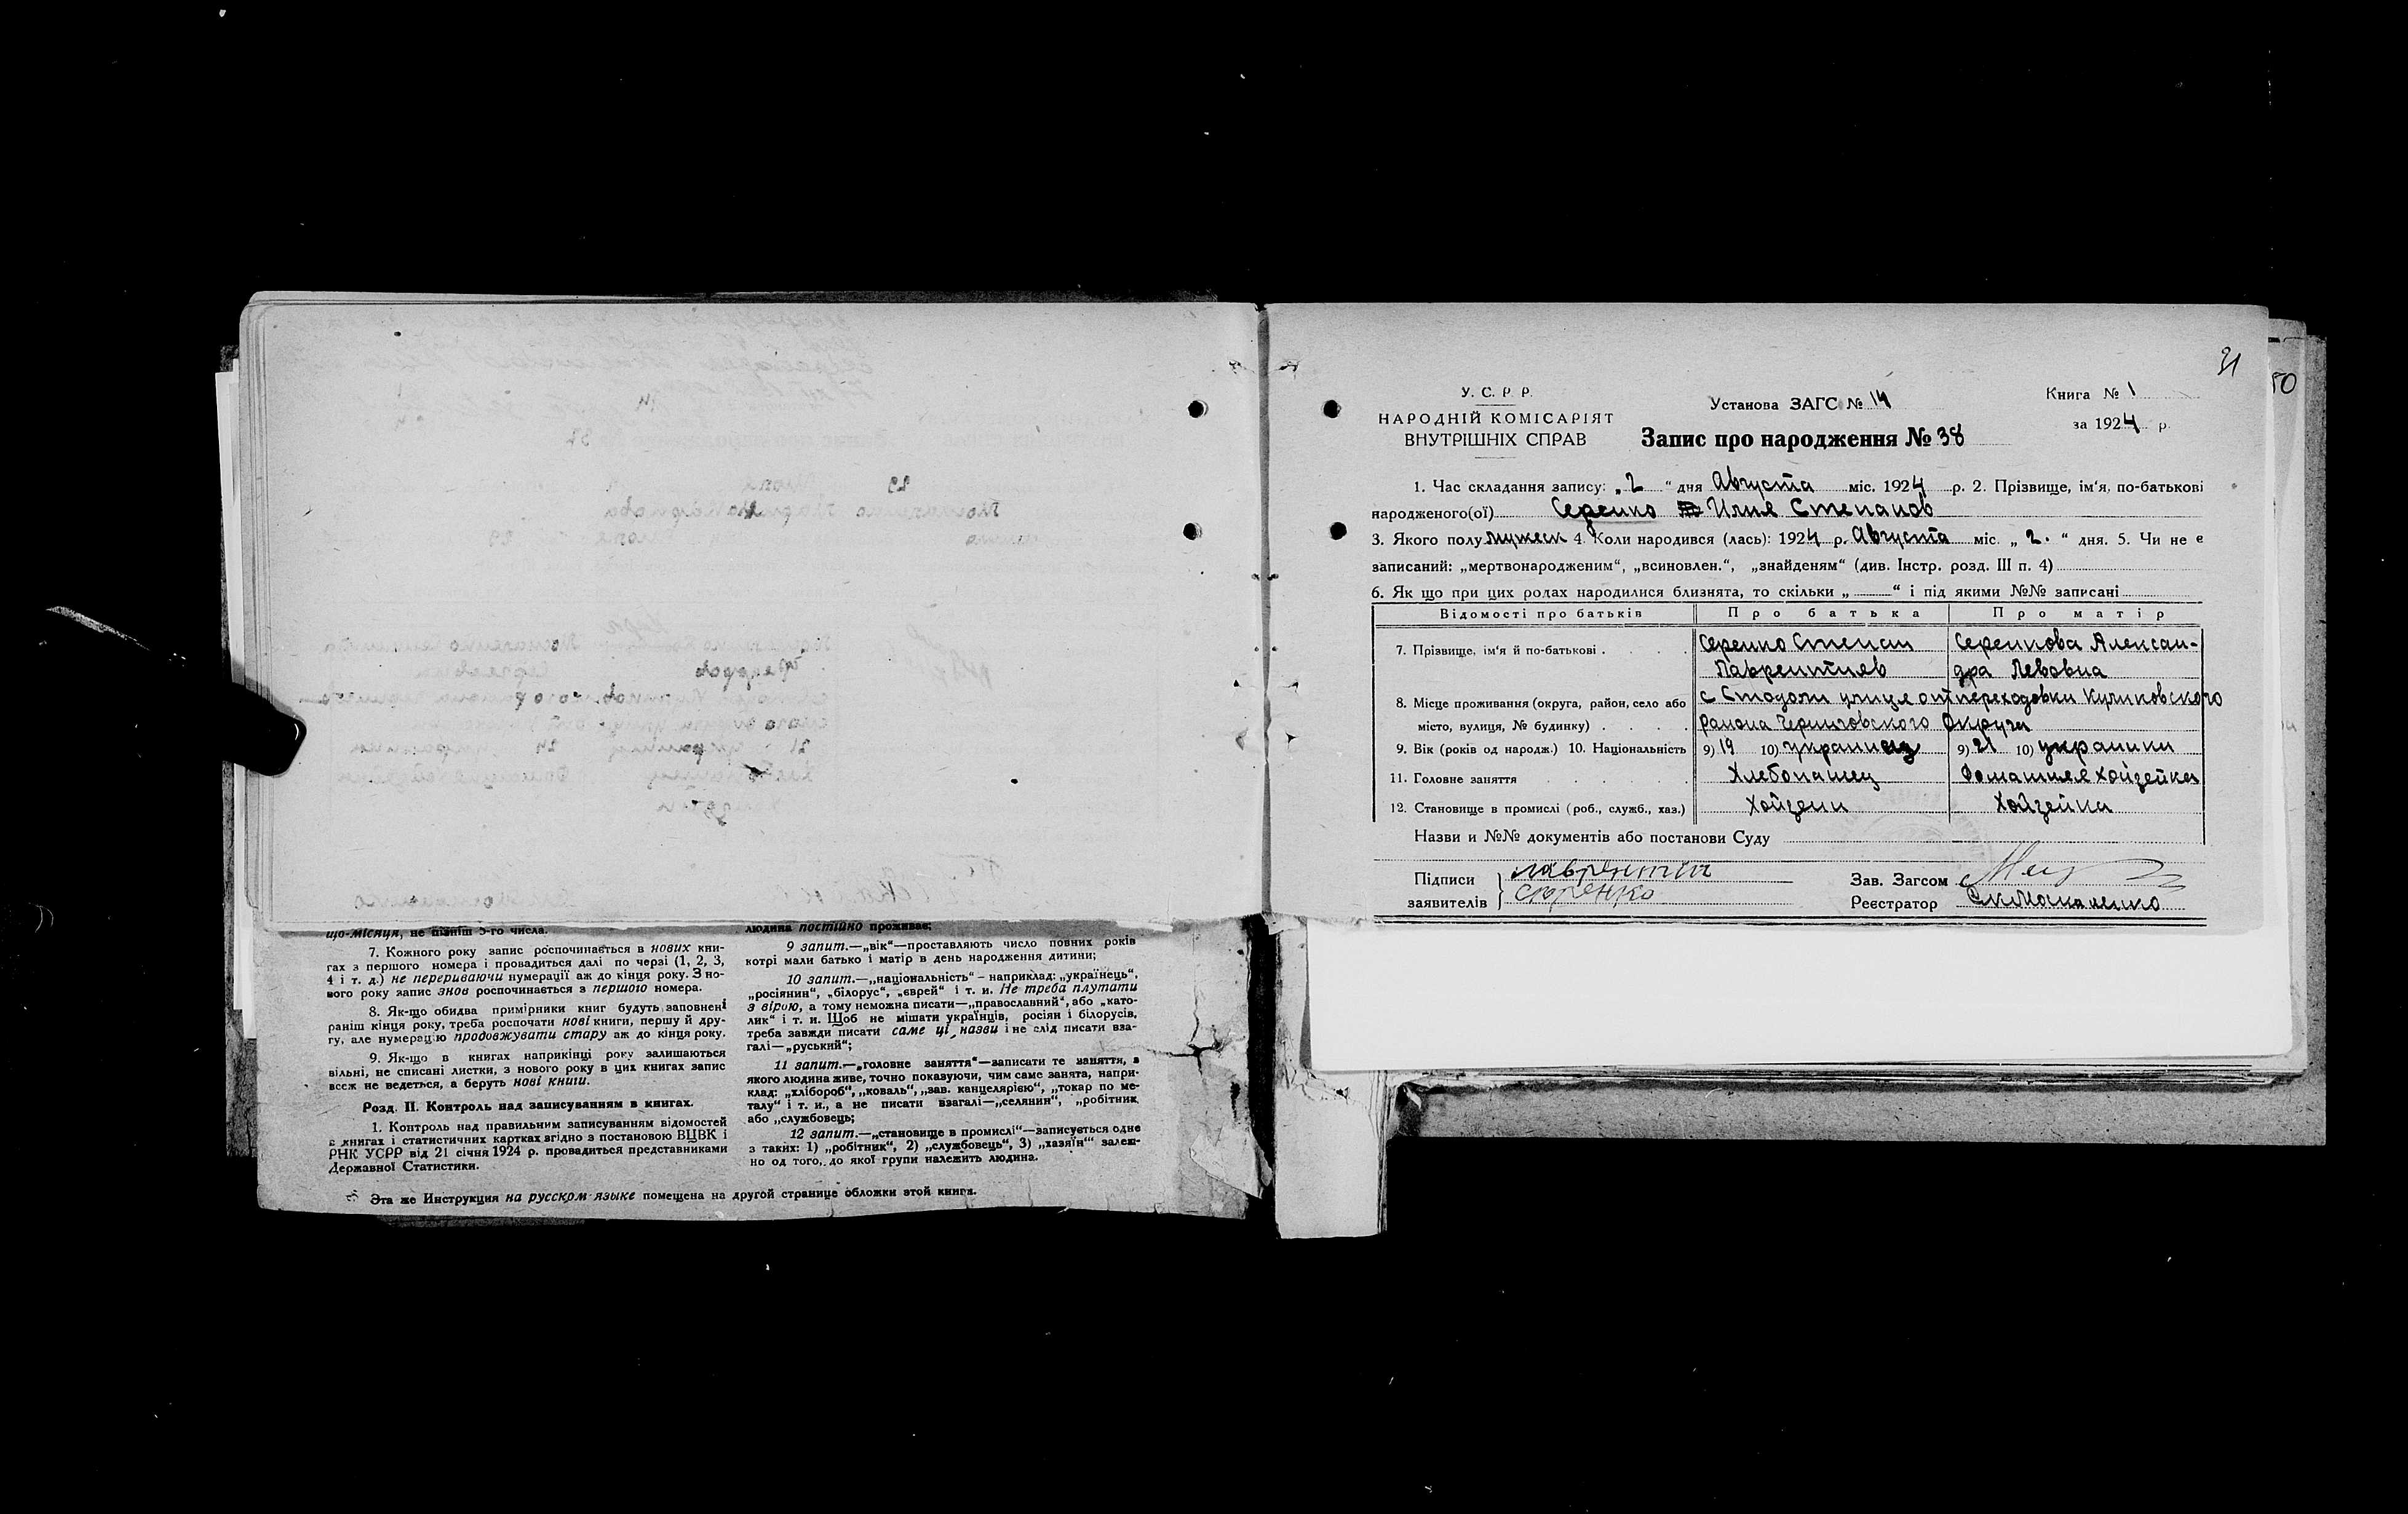 що-місяця, не пізніш 5-го числа.
7. Кожного року запис роспочинається в нових кни-
гах з першого номера і провадиться далі по черзі (1, 2, 3,
4 і т. д.) не перериваючи нумерації аж до кінця року. З но-
вого року запис знов роспочинається з першого номера.
8. Як-що обидва примірники книг будуть заповнені
раніш кінця року, треба роспочати нові книги, першу й дру-
гу, але нумерацію продовжувати стару аж до кінця року.
9. Як-що в книгах наприкінці року залишаються
вільні, не списані листки, з нового року в цих книгах запис
всеж не ведеться, а беруть нові книги.
Розд. II. Контроль над записуванням в книгах.
1. Контроль над правильним записуванням відомостей
в книгах і статистичних картках згідно з постановою ВЦВК і
РНК УСРР від 21 січня 1924 р. провадиться представниками
Державної Статистики.
людина постійно проживає;
9 запит.—„вік“—проставляють число повних років
котрі мали батько і матір в день народження дитини;
10 запит.—„національність“ – наприклад: „українець“,
„росіянин“, „білорус“, „єврей“ і т. и. Не треба плутати
з вірою, а тому неможна писати—„православний“, або „като-
лик“ і т. и. Щоб не мішати українців, росіян і білорусів,
треба завжди писати саме ці назви і не слід писати вза-
галі—„руський“;
11 запит.—„головне заняття“—записати те заняття, з
якого людина живе, точно показуючи, чим саме занята, напри-
клад: „хлібороб“, „коваль“, „зав. канцелярією“, „токар по ме-
талу“ і т. и., а не писати взагалі—„селянин“, „робітник
або „службовець;
12 запит.—„становище в промислі“—записується одне
з таких: 1) „робітник“, 2) „службовець“, 3) „хазяїн“ залеж-
но од того, до якої групи належить людина.
Эта же Инструкция на русском языке помещена на другой странице обложки этой книги.
31
50
У. С. Р. Р.
НАРОДНІЙ КОМІСАРІЯТ
ВНУТРІШНІХ СПРАВ
Установа ЗАГС № 14
Запис про народження № 38
Книга № 1
за 1924 р.
1. Час складання запису: „2“ дня Августа міс. 1924 р. 2. Прізвище, ім‘я, по-батькові
народженого(ої) Серенко Илия Степанов
3. Якого полу мужеск 4. Коли народився (лась): 1924 р. Августа міс. „2.“ дня. 5. Чи не є
записаний: „мертвонародженим“, „всиновлен.“, „знайденям“ (див. Інстр. розд. III п. 4)
6. Як що при цих родах народилися близнята, то скільки „ “ і під якими №№ записані
Відомості про батьків Про батька Про матір
7. Прізвище, ім‘я й по-батькові Серенко Степан Серенкова Алексан-
Лаврентиев дра Левовна
8. Місце проживання (округа, район, село або с Стодоли улиця от переходовки Куликовского
місто, вулиця, № будинку) района Черниговского Округи
9. Вік (років од народж.) 10. Національність 9) 19 10) украинец 9) 21 10) украинки
11. Головне заняття Хлебопашец Домашняя хойзейка
12. Становище в промислі (роб., служб., хаз.) Хойзеин Хойзейка
Назви и №№ документів або постанови Суду
Підписи лаврентій
заявителів серенко
Зав. Загсом
Реєстратор